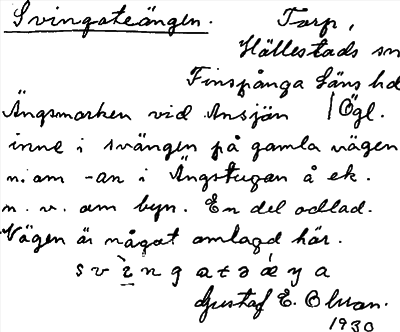 Svingateängen. Torp,
Hällestads sn
Finspånga Läns hd
Ängsmarken vid Ansjön / Ögl.
inne i svängen på gamla vägen
n. om -an i Ängstugan å ek.
n. v. om byn. En del odlad.
Vägen är något omlagd här.
Gustaf E. Olsson.
1930